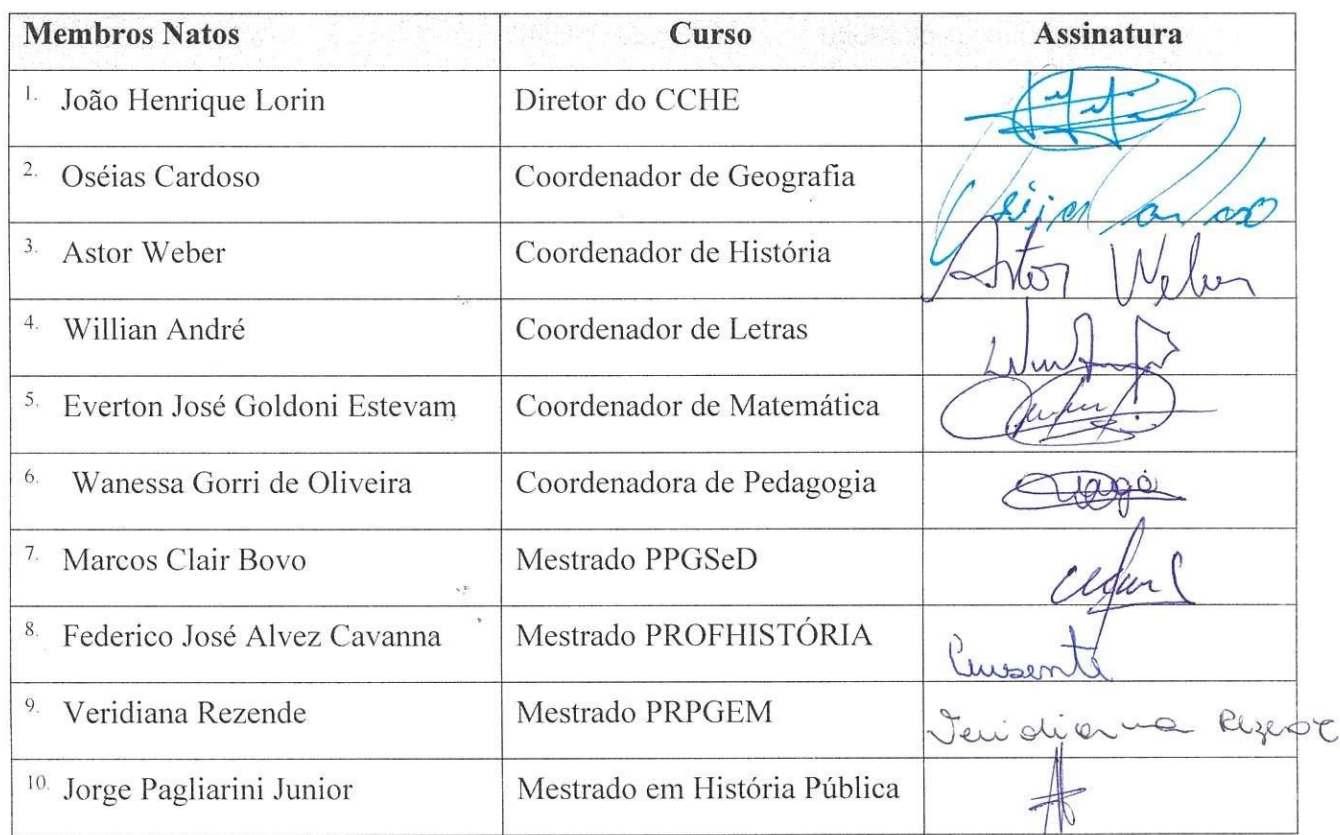 Membros Natos Curso Assinatura
1. João Henrique Lorin Diretor do CCHE
2. Oséias Cardoso Coordenador de Geografia
3. Astor Weber Coordenador de História Astor Weber
4. Willian André Coordenador de Letras
5. Everton José Goldoni Estevam Coordenador de Matemática
6. Wanessa Gorri de Oliveira Coordenadora de Pedagogia
7. Marcos Clair Bovo Mestrado PPGSeD
8. Federico José Alvez Cavanna Mestrado PROFHISTÓRIA
9. Veridiana Rezende Mestrado PRPGEM Veridiana Rezende
10. Jorge Pagliarini Junior Mestrado em História Pública